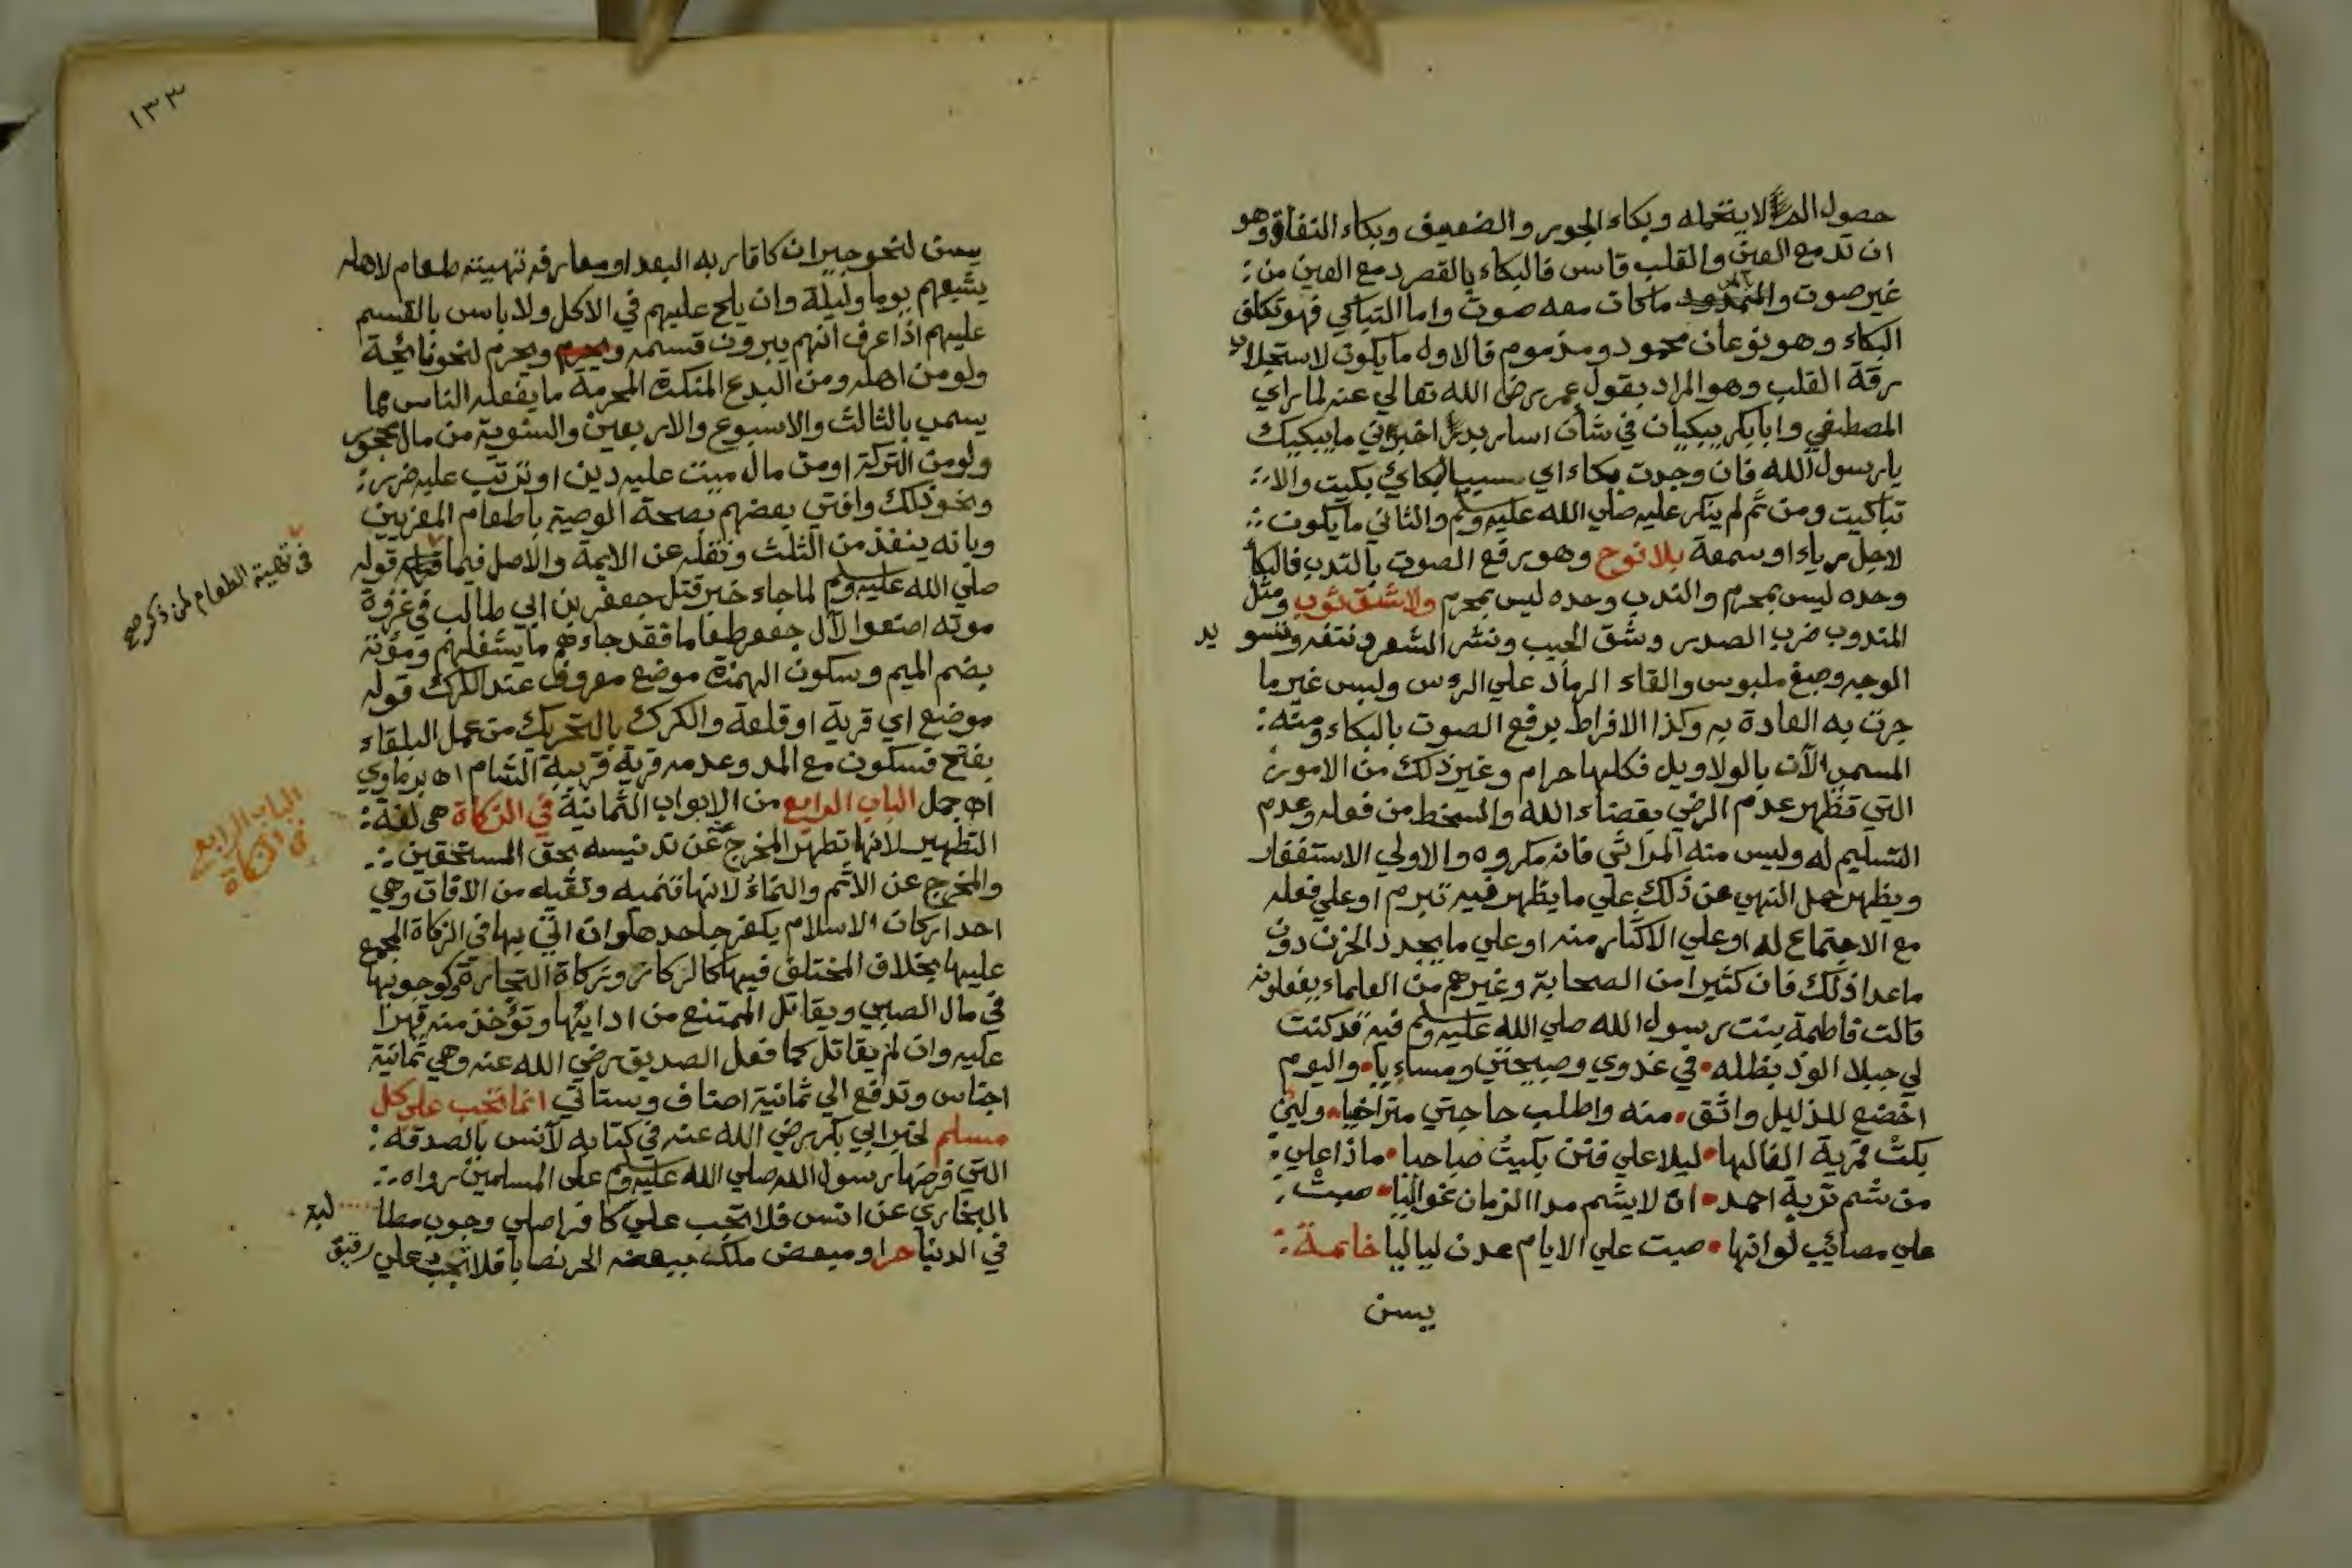 حصول الم لا يتحمله وبكاء الجور والضعيف وبكاء النفاق وهو
ان تدمع العين والقلب قاس فالبكاء بالقصر دمع العين من
غير صوت والممدود ماكان معه صوت واما التباكي فهو تكلف
البكاء وهو نوعان محمود ومذموم فالاول مايكون لاستجلاب
رقة القلب وهو المراد بقول عمر رضي الله تعالي عنه لما راي
المصطفي وابابكر يبكيان في شأن اساري بدر اخبرني مايبكيك
يارسول الله فان وجدت بكاء اي سببا لبكائي بكيت والا
تباكيت ومن ثم لم ينكر عليه صلي الله عليه وسلم والثاني مايكون
لاجل رياء او سمعة بلا نوح وهو رفع الصوت بالندب فالبكأ
وحده ليس بمحرم والندب وحده ليس بمحرم ولا شق ثوب ومثل
المندوب ضرب الصدر وشق الجيب ونشر الشعر ونتفه وتسويد
الوجه وصبغ ملبوس والقاء الرماد علي الروس ولبس غير ما
جرت به العادة به وكذا الافراط برفع الصوت بالبكاء ومنه
المسمي الآن بالولاويل فكلها حرام وغير ذلك من الامور
التي تظهر عدم الرضي بقضاء الله والسخط من فعله وعدم
التسليم له وليس منه المراثي فانه مكروه والاولي الاستغفار
ويظهر حمل النهي عن ذلك علي مايظهر فيه تبرم او علي فعله
مع الاجتماع له او علي الاكثار منه او علي مايجدد الحزن دون
ماعدا ذلك فان كثيرا من الصحابة وغيرهم من العلماء يفعلونه
قالت فاطمة بنت رسول الله صلي الله عليه وسلم فيه قد كنت
لي جبلا الوذ بظله • في غدوي وصبيحتي ومساءيا • واليوم
اخضع للذليل واتق • منه واطلب حاجتي متراخيا • ولين
بكت قمرية الفالها • ليلا علي فنن بكيت صباحيا • ماذا علي
من شم تربة احمد • ان لا يشم مدا الزمان غواليا • صبت
علي مصائب لو انها • صبت علي الايام عدن لياليا خاتمة
يسن
١٣٣
يسن لنحو جيران كاقاربه البعدا ومعارفه تهيئة طعام لاهله
يشبعهم يوما وليلة وان يلح عليهم في الاكل ولا باس بالقسم
عليهم اذا عرف انهم يبرون قسمه ويحرم ويحرم لنحو نائحة
ولو من اهله ومن البدع المنكرة المحرمة مايفعله الناس مما
يسمي بالثالث والاسبوع والاربعين والسنوية من مال محجور
ولو من التركة او من مال ميت عليه دين او ترتب عليه ضرر
ونحو ذلك وافتي بعضهم بصحة الوصية باطعام المعزيين
وبانه ينفذ من الثلث ونقله عن الايمة والاصل فيما قوله
صلي الله عليه وسلم لما جاء خبر قتل جعفر بن ابي طالب في غزوة
موته اصنعوا لآل جعفر طعاما فقد جاءهم مايشغلهم ومؤتة
بضم الميم وسكون الهمزة موضع معروف عند الكرك قوله
موضع اي قرية او قلعة والكرك بالتحريك من عمل البلقاء
بفتح فسكون مع المد وعدمه قرية قريبة الشام اه برماوي
اه جمل الباب الرابع من الابواب الثمانية في الزكاة هي لغة
التطهير لانها تطهر المخرج عنه عن تدنيسه بحق المستحقين
والمخرج عن الاثم والنماءُ لانها تنميه وتقيه من الافات وهي
احد اركان الاسلام يكفر جاحدها وان اتي بها في الزكاة المجمع
عليها بخلاف المختلف فيها كالركاز وزكاة التجارة وكوجوبها
في مال الصبي ويقاتل الممتنع من ادايها وتؤخذ منه قهرا
عليه وان لم يقاتل كما فعل الصديق رضي الله عنه وهي ثمانية
اجناس وتدفع الي ثمانية اصناف وستاتي انما تجب علي كل
مسلم لخبر ابي بكر رضي الله عنه في كتابه لآنس بالصدقة
التي فرضها رسول الله صلي الله عليه وسلم على المسلمين رواه
البخاري عن انس فلا تجب علي كافر اصلي وجوب مطالبة
في الدنيا حر او مبعض ملك ببعضه الحر نصابا فلا تجب علي رقيق
في تهية الطعام لمن ذكر صح
الباب الرابع
في الزكاة